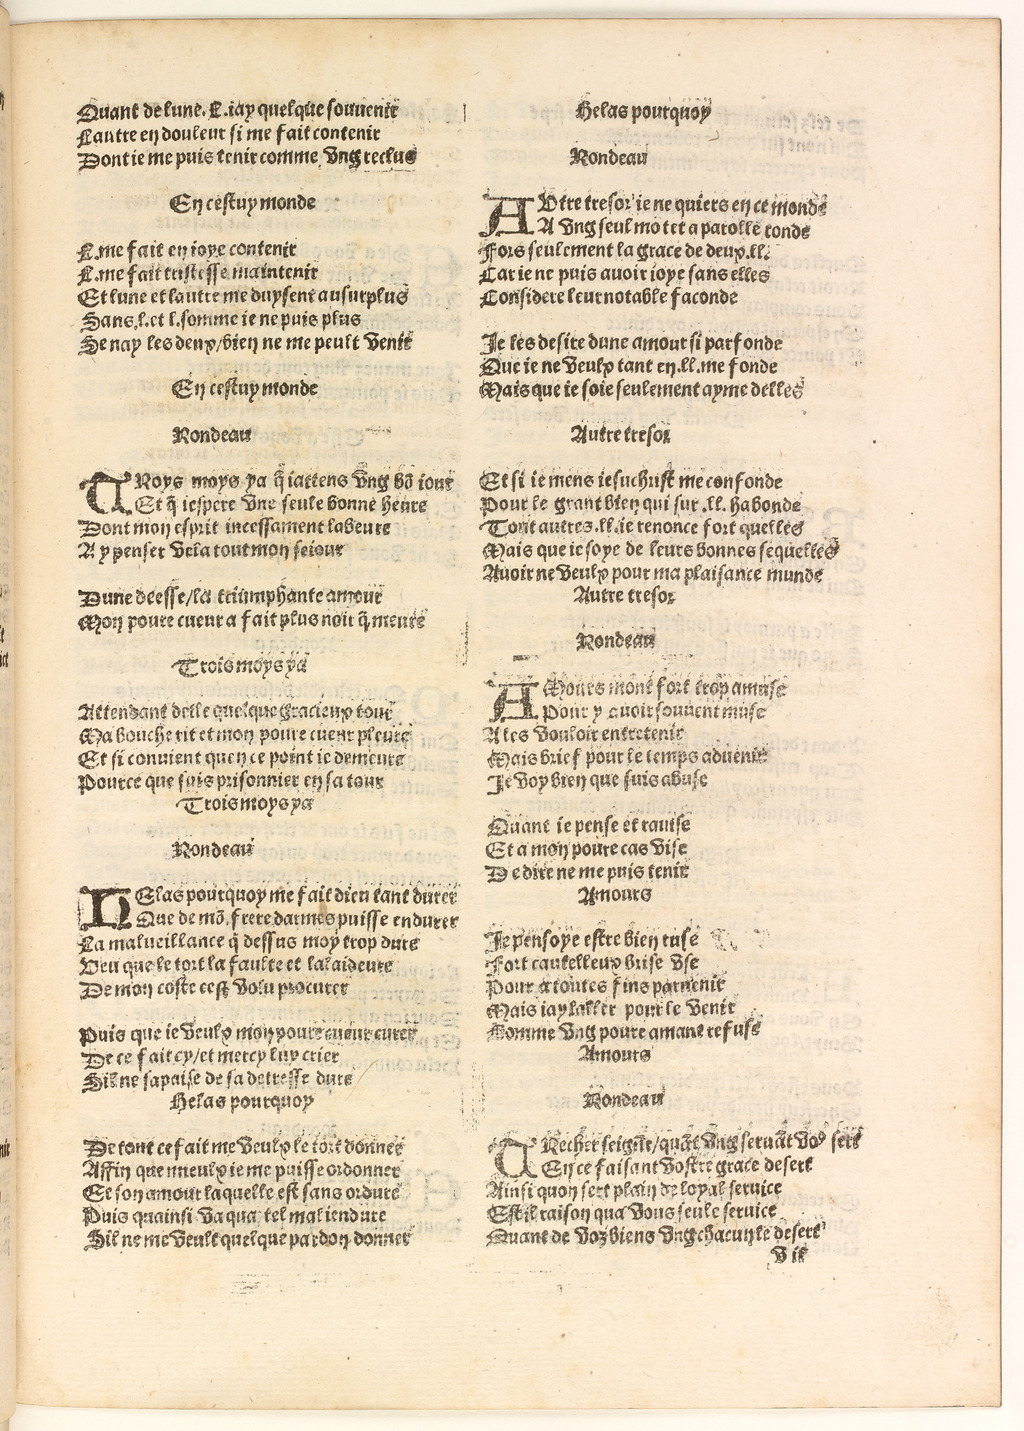 Quant de lune. L. iay quelque souuenir
Lautre en douleur si me fait contenir
Dont ie me puis tenir comme vng reclus
En cestuy monde
L. me fait en ioye contenir
L. me fait tristesse maintenir
Et lune et lautre me duysent au surplus
Sans. l. et l. somme ie ne puis plus
Se nay les deux/bien ne me peult venir
En cestuy monde
Rondeau
TRoys moys ya q̃ iattens vng bõ iour
Et q̃ iespere vne seule bonne heure
Dont mon esprit incessament labeure
A y penser vela tout mon seiour
Dune deesse/la triumphante amour
Mon poure cueur a fait plus noir q̃ meure
Trois moys ya
Attendant delle quelque gracieux tour
Ma bouche rit et mon poure cueur pleure
Et si conuient quen ce point ie demeure
Pource que suis prisonnier en sa tour
Trois moys ya
Rondeau
HElas pourquoy me fait dieu tant durer
Que de mõ. frere darmes puisse endurer
La malueillance q̃ dessus moy trop dure
Veu que le tort la faulte et la laidure
De mon coste cest volu procurer
Puis que ie veulx mon poure cueur curer
De ce fait cy/et mercy luy crier
Sil ne sapaise de sa detresse dure
Helas pourquoy
De tout ce fait me veulx le tort donner
Affin que mieulx ie me puisse ordonner
Et son amour laquelle est sans ordure
Puis quainsi va qua tel mal iendure
Sil ne me veult quelque pardon donner
Helas pourquoy
Rondeau
AVtre tresor ie ne quiers en ce monde
A vng seul mot et a parolle ronde
Fors seulement la grace de deux. ll.
Car ie ne puis auoir ioye sans elles
Considere leur notable faconde
Je les desire dune amour si parfonde
Que ie ne veulx tant en. ll. me fonde
Mais que ie soie seulement ayme delles
Autre tresor
Et si ie mens iesuchrist me confonde
Pour le grant bien qui sur .ll. habonde
Tout autres. ll. ie renonce fort quelles
Mais que ie soye de leurs bonnes sequelles
Auoir ne veulx pour ma plaisance munde
Autre tresor
Rondeau
AMours mont fort trop amuse
Pour y auoir souuent muse
A les vouloir entretenir
Mais brief pour le temps aduenir
Je voy bien que suis abuse
Quant ie pense et rauise
Et a mon poure cas vise
De dire ne me puis tenir
Amours
Je pensoye estre bien ruse
Fort cautelleux brise vse
Pour a toutes fins paruenir
Mais iay laller pour le venir
Comme vng poure amant refuse
Amours
Rondeau
TRecher seigñr/quãt vng seruãt voꝰ sert
En ce faisant vostre grace desert
Ainsi quon sert plain de loyal seruice
Est il raison qua vous seule seruice
Quant de voz biens vng chacun le desert
Vil